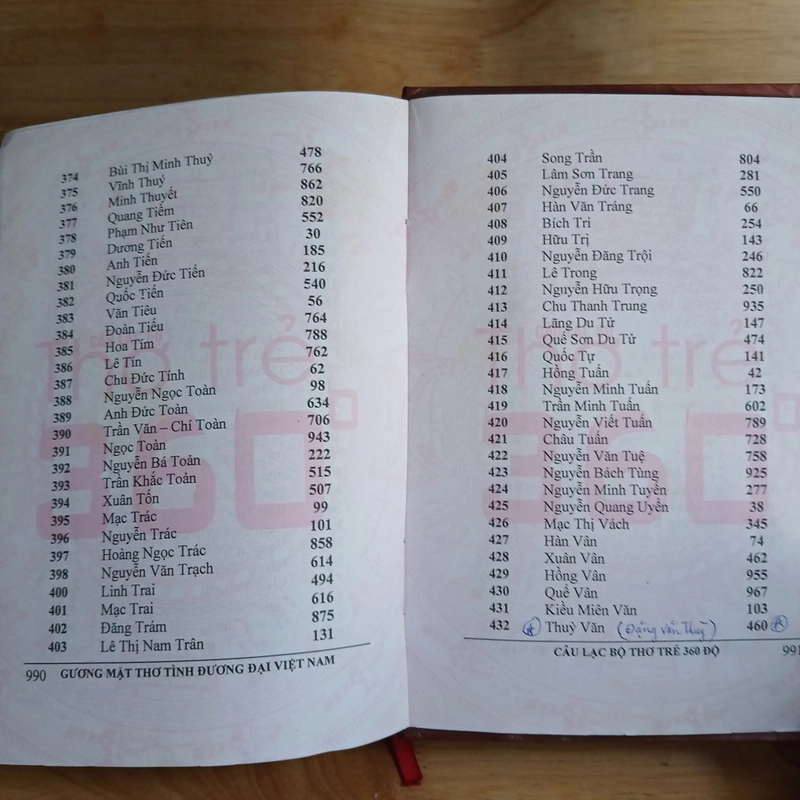 374 Bùi Thị Minh Thuỷ 478
375 Vĩnh Thuý 766
376 Minh Thuyết 862
377 Quang Tiềm 820
378 Phạm Như Tiên 552
379 Dương Tiến 30
380 Anh Tiến 185
381 Nguyễn Đức Tiến 216
382 Quốc Tiến 540
383 Văn Tiêu 56
384 Đoàn Tiếu 764
385 Hoa Tím 788
386 Lê Tín 762
387 Chu Đức Tính 62
388 Nguyễn Ngọc Toàn 98
389 Anh Đức Toàn 634
390 Trần Văn – Chí Toàn 706
391 Ngọc Toàn 943
392 Nguyễn Bá Toản 222
393 Trần Khắc Toản 515
394 Xuân Tốn 507
395 Mạc Trác 99
396 Nguyễn Trác 101
397 Hoàng Ngọc Trác 858
398 Nguyễn Văn Trạch 614
400 Linh Trai 494
401 Mạc Trai 616
402 Đăng Trám 875
403 Lê Thị Nam Trân 131
990 GƯƠNG MẶT THƠ TÌNH ĐƯƠNG ĐẠI VIỆT NAM
Thơ trẻ
360°
404 Song Trần 804
405 Lâm Sơn Trang 281
406 Nguyễn Đức Trang 550
407 Hàn Văn Tráng 66
408 Bích Tri 254
409 Hữu Trị 143
410 Nguyễn Đăng Trội 246
411 Lê Trong 822
412 Nguyễn Hữu Trọng 250
413 Chu Thanh Trung 935
414 Lãng Du Tử 147
415 Quế Sơn Du Tử 474
416 Quốc Tự 141
417 Hồng Tuấn 42
418 Nguyễn Minh Tuấn 173
419 Trần Minh Tuấn 602
420 Nguyễn Viết Tuấn 789
421 Châu Tuấn 728
422 Nguyễn Văn Tuệ 758
423 Nguyễn Bách Tùng 925
424 Nguyễn Minh Tuyền 277
425 Nguyễn Quang Uyển 38
426 Mạc Thị Vách 345
427 Hàn Vân 74
428 Xuân Vân 462
429 Hồng Vân 955
430 Quế Vân 967
431 Kiều Miên Văn 103
432 Thuỳ Văn (Đặng Văn Thuỳ) 460
CÂU LẠC BỘ THƠ TRẺ 360 ĐỘ 991
Thơ trẻ
360°